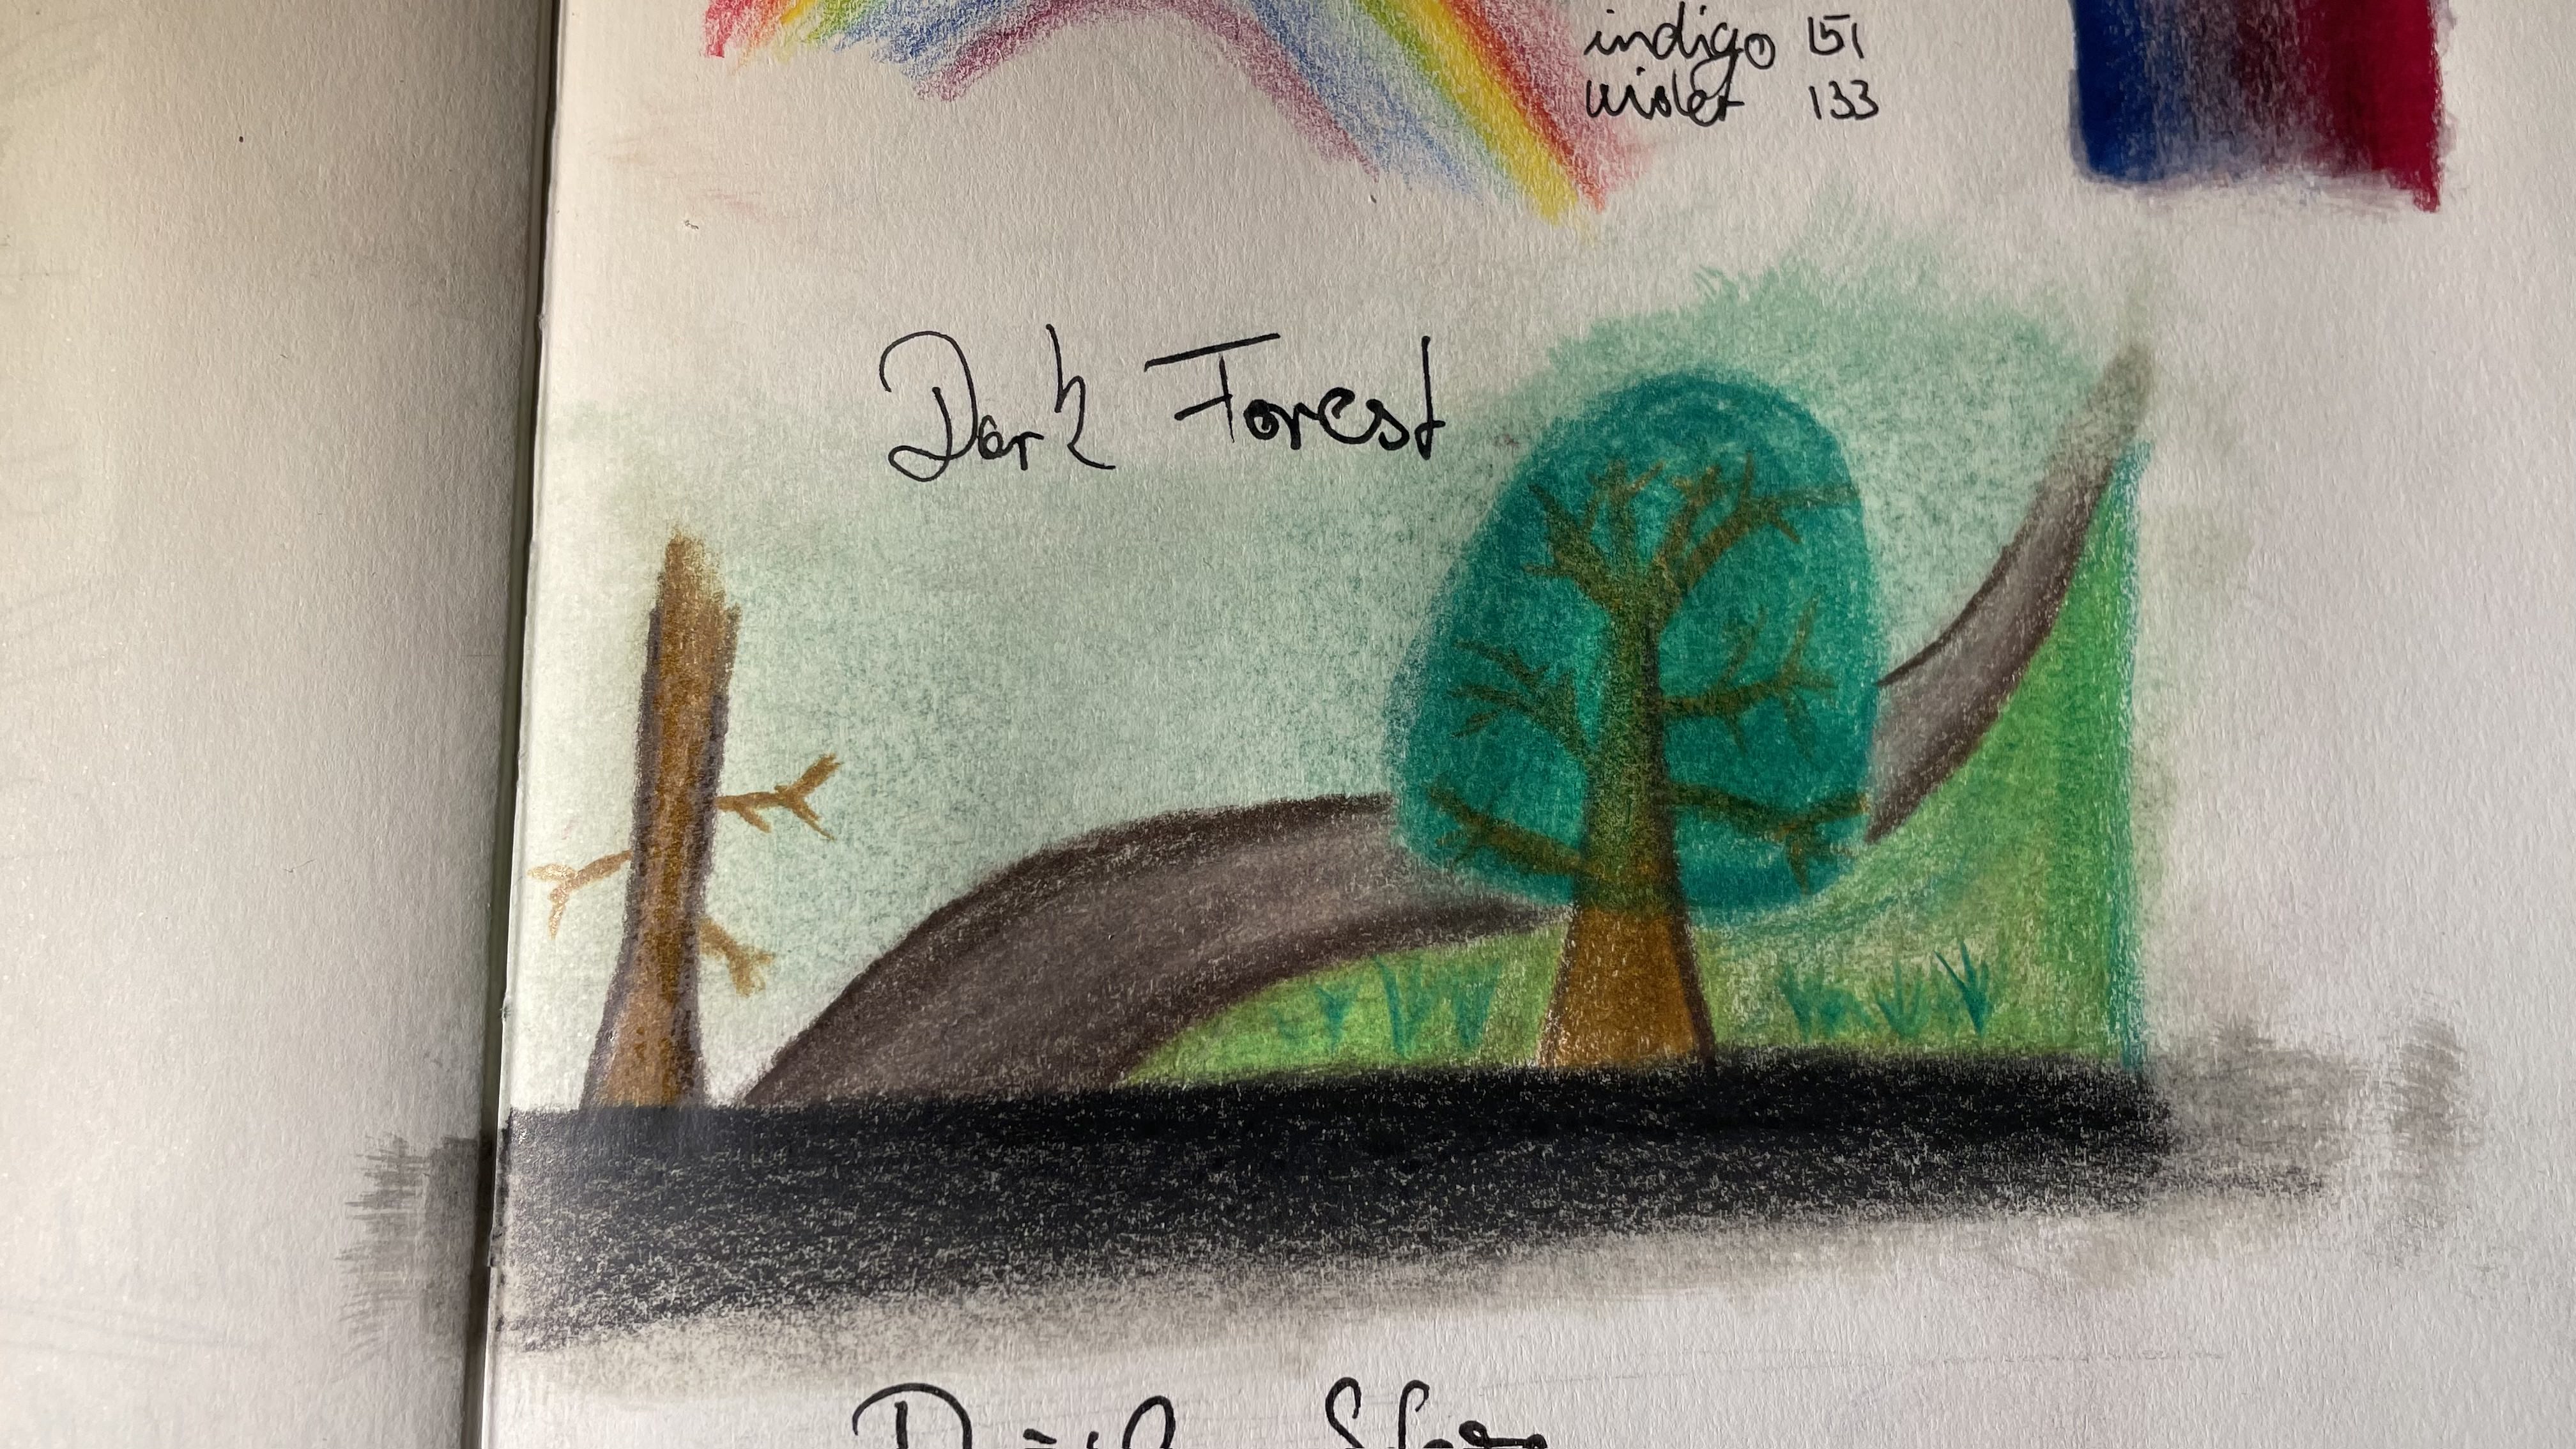 indigo 151
violet 133
Dark Forest